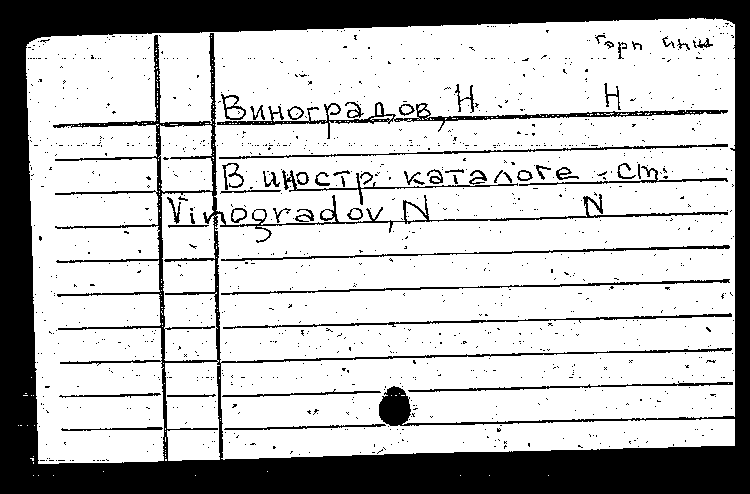 Виноградов, Н Н
В иностр. каталоге - ст.
Vinogradov, N N